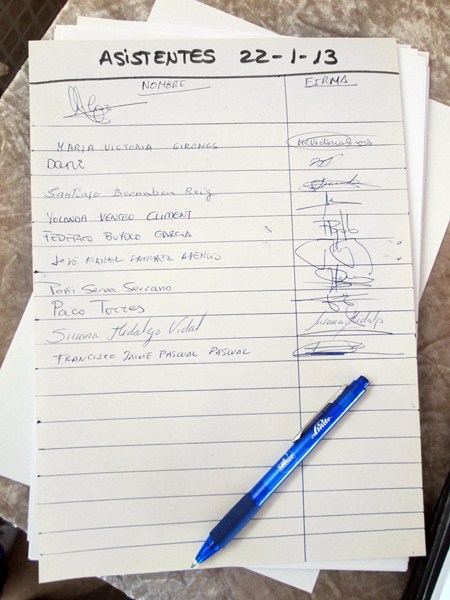 ASISTENTES 22-1-13
NOMBRE FIRMA
MARIA VICTORIA GIRONES Mª Victoria Girones
Santiago Bernabeu Reig
YOLANDA VENTEO CLIMENT
FEDERICO BUYOLO GARCIA
JOSÉ MANUEL SANCHEZ ASENCIO
Toñi Serna Serrano
Paco Torres
Susana Hidalgo Vidal Susana Hidalgo
FRANCISCO JAIME PASCUAL PASCUAL